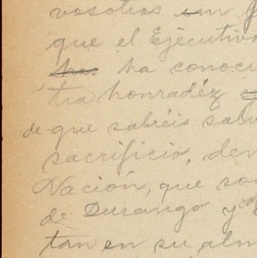 vosotros
que el Ejecutivo
ha conocu
tra honradéz
de que sabréis salv
sacrificio, den
Nación, que so
de Durango y
tan en su alm